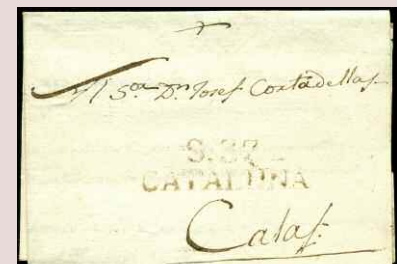 Al Sor. Dn. Josef Costadellas
S. 37
CATALUÑA
Calaf.